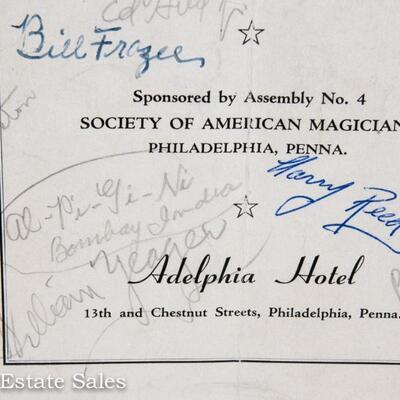 Bill Frazee
Sponsored by Assembly No. 4
SOCIETY OF AMERICAN MAGICIAN
PHILADELPHIA, PENNA.
Harry Reed
Al-Pi-Gi-Ni
Bombay India
William Yeager
Adelphia Hotel
13th and Chestnut Streets, Philadelphia, Penna.
Estate Sales